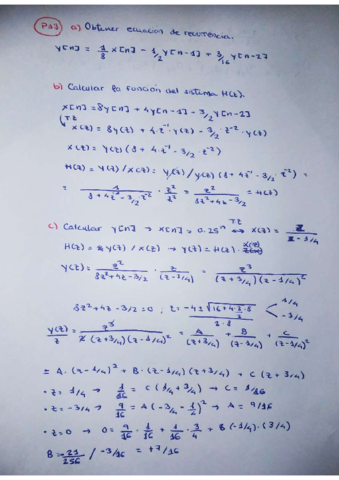 P13 a) Obtener ecuación de recurrencia.
y[n] = 1/8 x[n] - 1/2 y[n-1] + 3/16 y[n-2]
b) Calcular la función del sistema H(z).
x[n] = 8y[n] + 4y[n-1] - 3/2 y[n-2]
↓TZ
X(z) = 8Y(z) + 4·z⁻¹·Y(z) - 3/2·z⁻²·Y(z)
X(z) = Y(z) (8 + 4z⁻¹ - 3/2·z⁻²)
H(z) = Y(z) / X(z) = Y(z) / Y(z) (8 + 4z⁻¹ - 3/2·z⁻²) =
= 1/(8 + 4z⁻¹ - 3/2 z⁻²) · z²/z² = z²/(8z² + 4z - 3/2) = H(z)
c) Calcular y[n] → x[n] = 0.25ⁿ TZ↔ X(z) = z/(z - 1/4)
H(z) = Y(z) / X(z) → Y(z) = H(z)· X(z)
Y(z) = z²/(8z² + 4z - 3/2) · z/(z - 1/4) = z³/((z + 3/4)(z - 1/4)²)
8z² + 4z - 3/2 = 0 ; z = (-4 ± √(16 + 4·3/2·8))/(2·8) < 1/4
-3/4
Y(z)/z = z³/(z (z + 3/4)(z - 1/4)²) = A/(z + 3/4) + B/(z - 1/4) + C/(z - 1/4)²
= A·(z - 1/4)² + B·(z - 1/4)(z + 3/4) + C (z + 3/4)
· z = 1/4 → 1/16 = C (1/4 + 3/4) → C = 1/16
· z = -3/4 → 9/16 = A (-3/4 - 1/4)² → A = 9/16
· z = 0 → 0 = 9/16 · 1/16 + 1/16 · 3/4 + B (-1/4)·(3/4)
B = -21/256 / -3/16 = +7/16